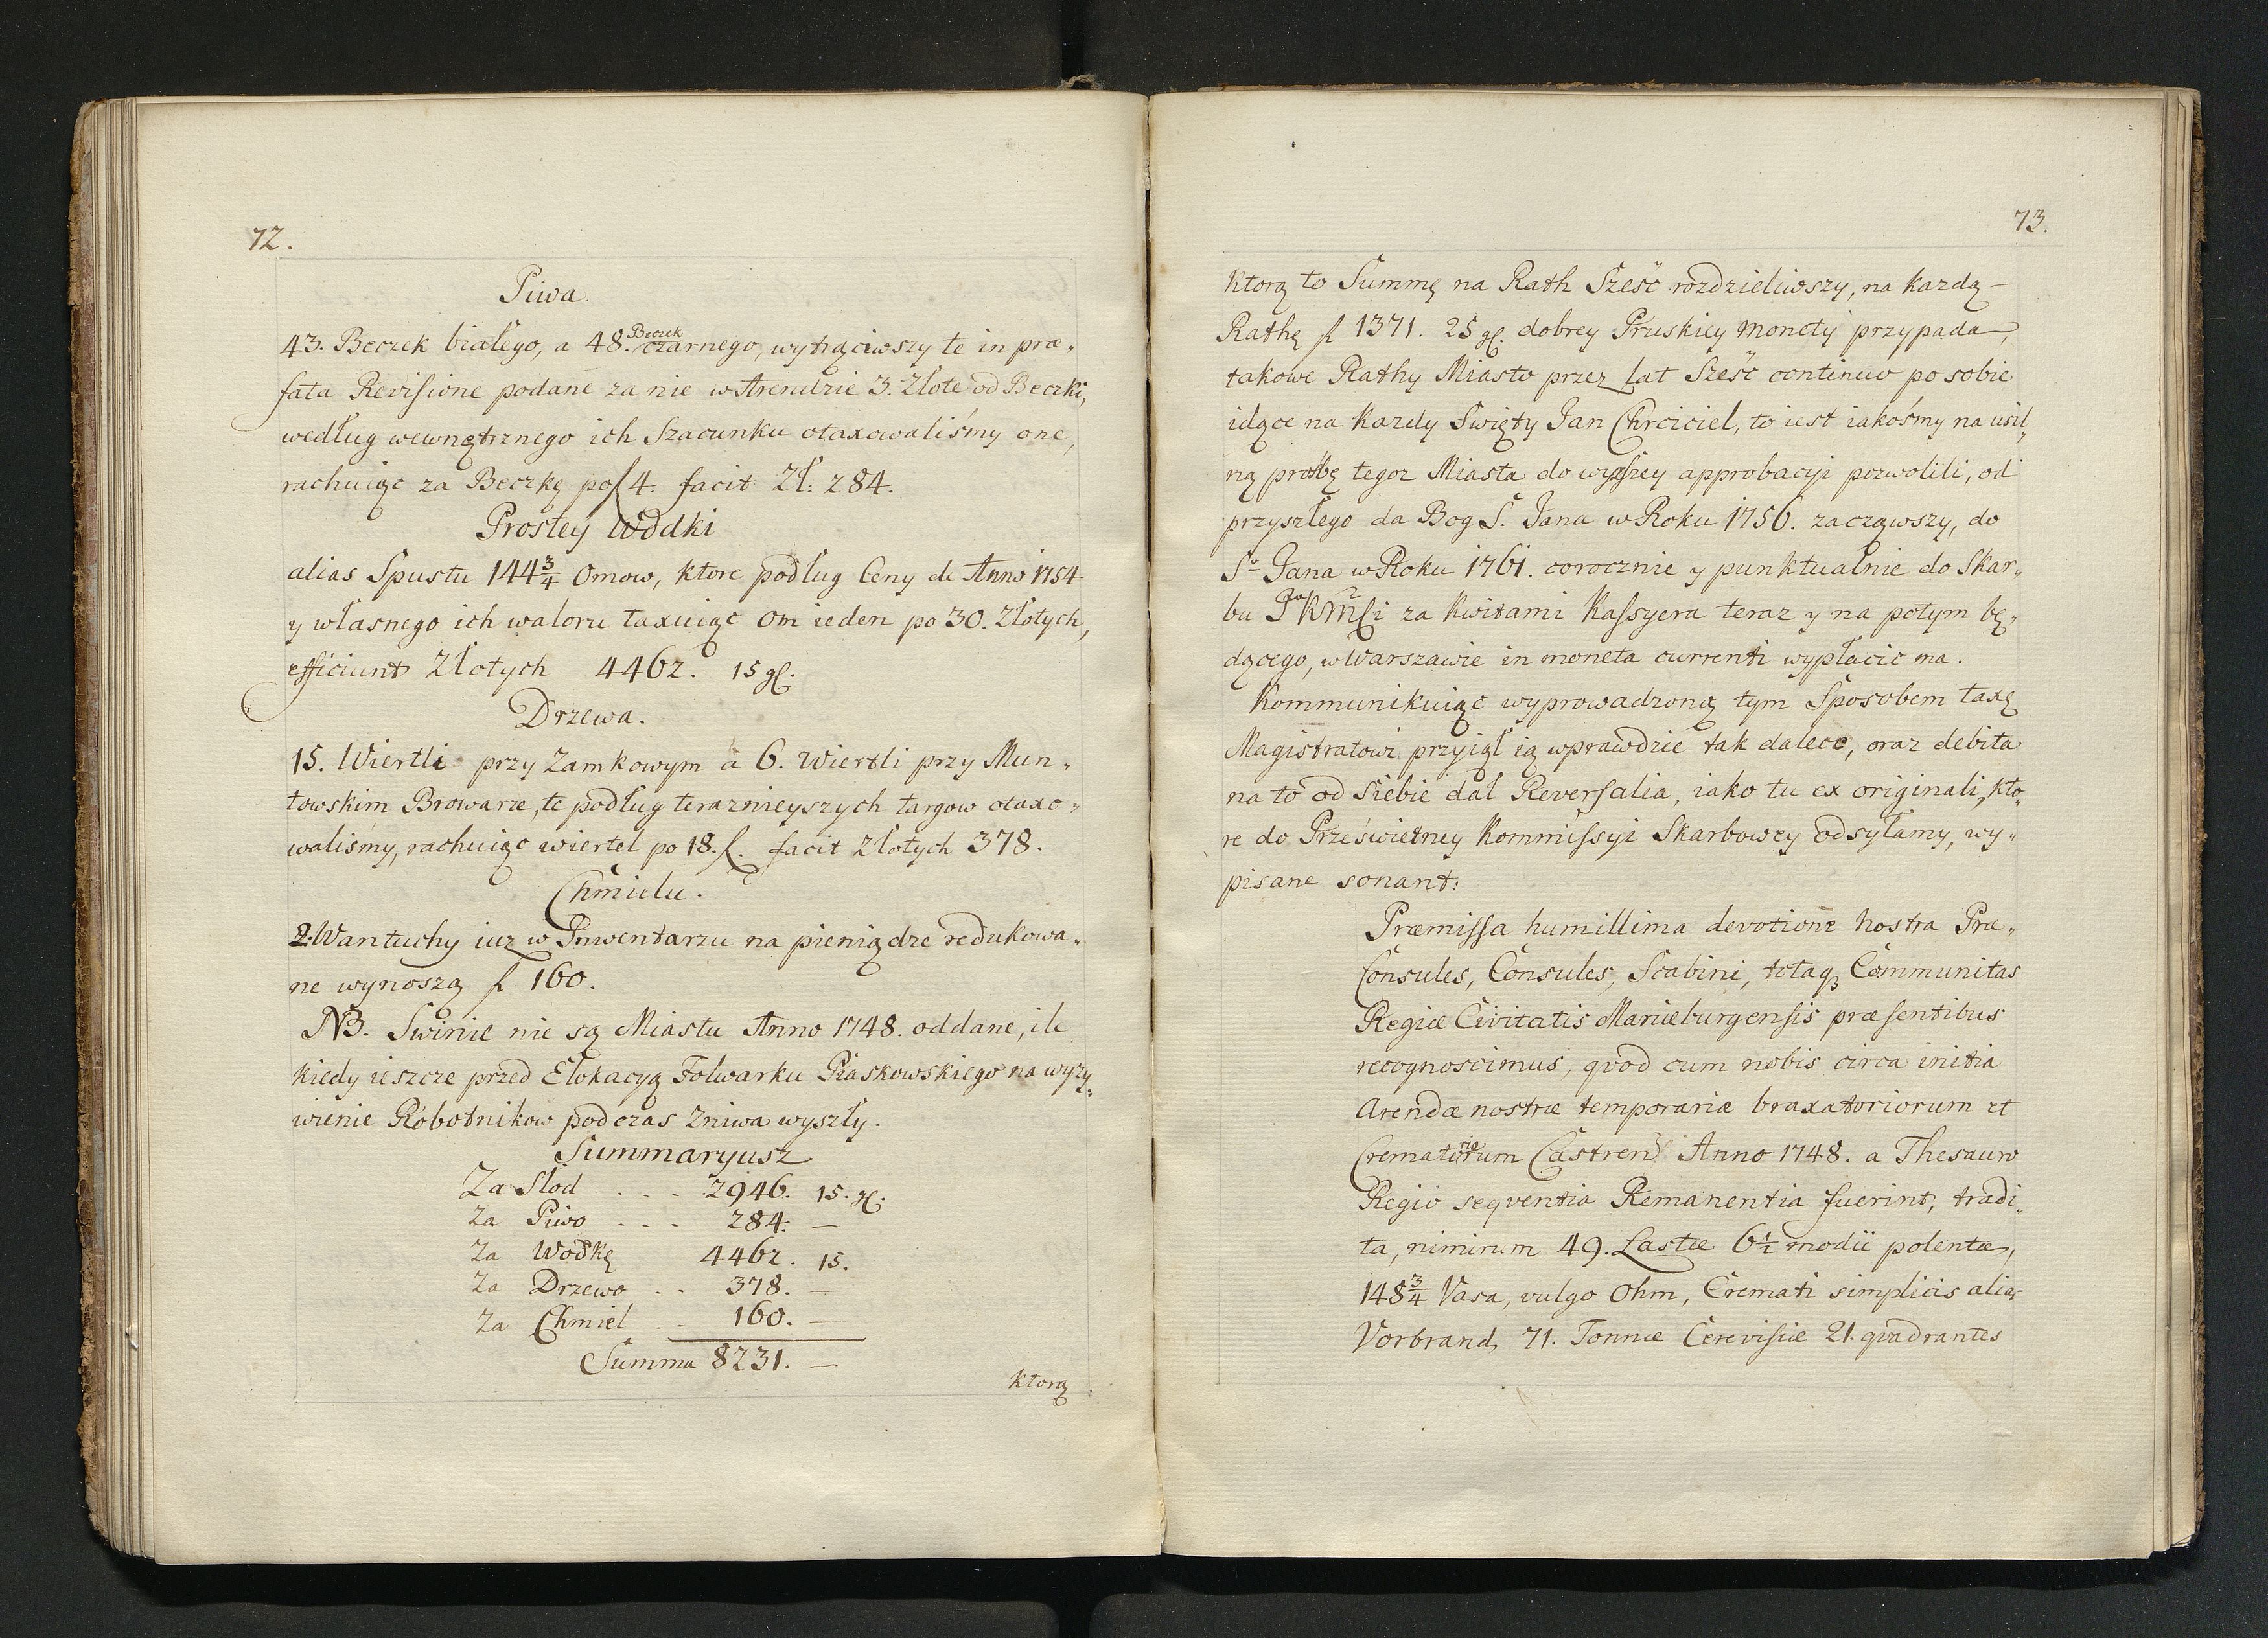 72.
Piwa.
43. Beczek białego, a 48. Beczek czarnego, wytrąciwszy te in præ„
fata Revisione podane za nie w Arendzie 3. Złote od Beczki,
według wewnętrznego ich Szacunku otaxowaliśmy one,
rachuiąc za Beczkę po f 4. facit Zł. 284.
Prostey Wodki
alias Spustu 144 3/4 Omow, ktore podług Ceny de Anno 1754
y własnego ich waloru taxuiąc Om ieden po 30. Złotych,
efficiunt Złotych 4462. 15 gl.
Drzewa.
15. Wiertli przy Zamkowym a 6. Wiertli przy Mun„
towskim Browarze, te podług teraznieyszych targow otaxo„
waliśmy, rachuiąc wiertel po 18. f. facit Złotych 378.
Chmielu.
2. Wantuchy iuz w Inwentarzu na pieniądze redukowa„
ne wynoszą f 160.
NB. Swinie nie są Miastu Anno 1748. oddane, ile
kiedy ieszcze przed Elokacyą Folwarku Piaskowskiego na wyzy„
wienie Robotnikow podczas Zniwa wyszły.
Summaryusz
Za Słod . . . 2946. 15. gl.
Za Piwo . . . 284. —
Za Wodkę 4462. 15.
Za Drzewo . . 378. —
Za Chmiel . . 160. —
Summa 8231. —
ktorą
73.
ktorą to Summę na Rath Sześć rozdzieliwszy, na kazdą –
Rathę f 1371. 25 gl. dobrey Pruskiey monety przypada,
takowe Rathy Miasto przez lat Sześć continuo po sobie
idące na kazdy Swięty Jan Chrciciel, to iest iakośmy na usil„
ną prośbę tegoz Miasta do wyższey approbacyi pozwolili, od
przyszłego da Bog S. Jana w Roku 1756. zacząwszy, do
S° Jana w Roku 1761. corocznie y punktualnie do Skar„
bu JKMſci za kwitami Kassyera teraz y na potym bę„
dącego, w Warszawie in moneta currenti wypłacic ma.
Kommunikuiąc wyprowadzoną tym Sposobem taxę
Magistratowi, przyiął ią wprawdzie tak daleco, oraz debita
na to od siebie dał Reversalia, iako tu ex originali, kto„
re do Prześwietney Kommissyi Skarbowey odsyłamy, wy„
pisane sonant:
Præmissa humillima devotione nostra Præ„
Consules, Consules, Scabini, totaq₃ Communitas
Regiæ Civitatis Mariæburgensis præsentibus
recognoscimus, qvod cum nobis circa initia
Arendæ nostræ temporariæ braxatoriorum et
Crematoriorum Castren: Anno 1748. a Thesauro
Regio seqventia Remanentia fuerint, tradi„
ta, nimirum 49. Lastæ 6 1/2 modii polentæ,
148 3/4 Vasa, vulgo Ohm, Cremati simplicis alias
Vorbrand, 71. Tonnæ Cerevisiæ 21. qvadrantes